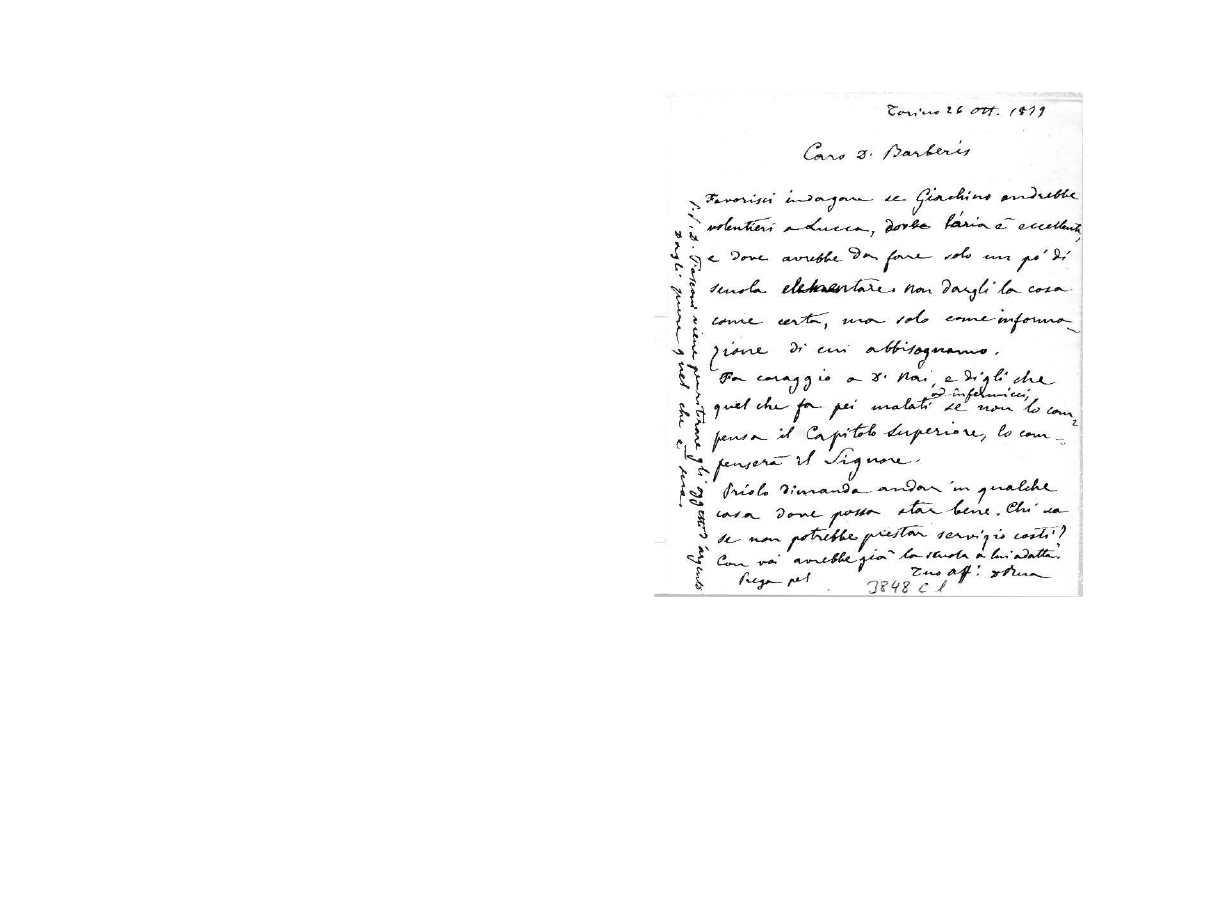 Torino 26 Ott. 1879
Caro D. Barberis
Favorisci indagare se Giachino andrebbe
volentieri a Lucca, dove l'aria è eccellente,
e dove avrebbe da fare solo un pò di
scuola elementare. Non dargli la cosa
come certa, ma solo come informa-
zione di cui abbisognamo.
Fa coraggio a D. Nai, e digli che
quel che fa pei malati ed infermicci, se non lo com-
pensa il Capitolo Superiore, lo com-
penserà il Signore.
Priolo dimanda andar in qualche
casa dove possa star bene. Chi sa
se non potrebbe prestar servigio costì?
Con voi avrebbe già la scuola a lui adatta.
Prega pel
Tuo aff. D Rua
P.S. D. viene per ritirare gli oggetti d'argento
Dagli pure quel che è suo.
3848 C 1